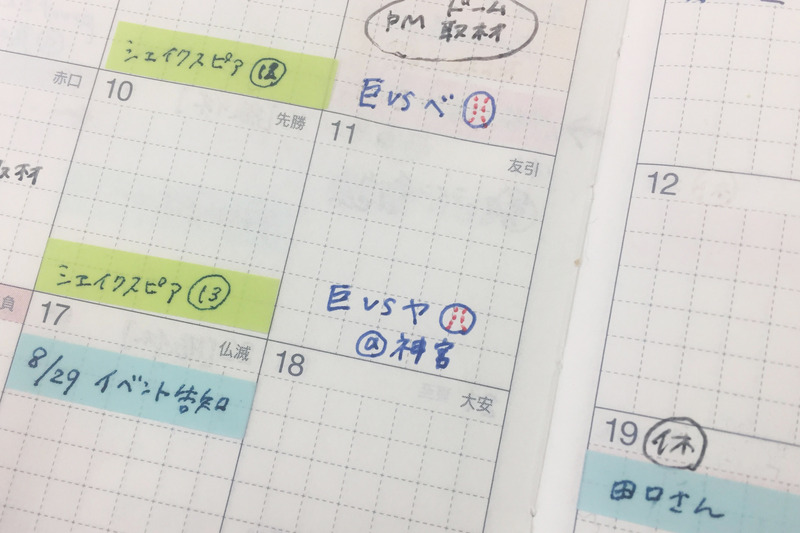 PM ドーム
取材
シェイクスピア ⑫
巨vsベ
赤口
10
先勝
11
友引
12
取材
シェイクスピア ⑬
巨vsヤ
@神宮
負
17
仏滅
18
大安
19 休
8/29 イベント告知
田口さん